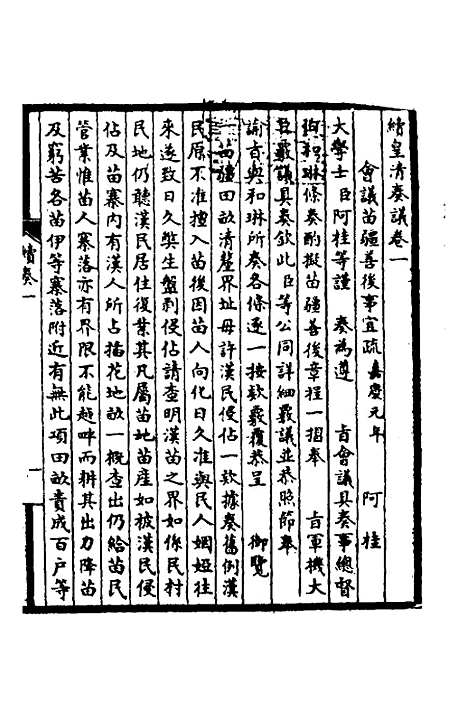 續皇清奏議卷一
會議苗疆善後事宜疏 嘉慶元年 阿桂
大學士臣阿桂等謹 奏為遵 旨會議具奏事總督
和琳條奏酌擬苗疆善後章程一摺奉 旨軍機大
臣覈議具奏欽此臣等公同詳細覈議並恭照節奉
諭旨與和琳所奏各條逐一按款覈覆恭呈 御覽
一苗疆田畝清釐界址毋許漢民侵佔一款據奏舊例漢
民原不准擅入苗後因苗人向化日久准與民人姻婭往
來遂致日久弊生盤剝侵佔請查明漢苗之界如係民村
民地仍聽漢民居住復業其凡屬苗地苗產如被漢民侵
佔及苗寨內有漢人所占插花地畝一概查出仍給苗民
管業惟苗人寨落亦有界限不能越畔而耕其出力降苗
及窮苦各苗伊等寨落附近有無此項田畝責成百戶等
續奏一